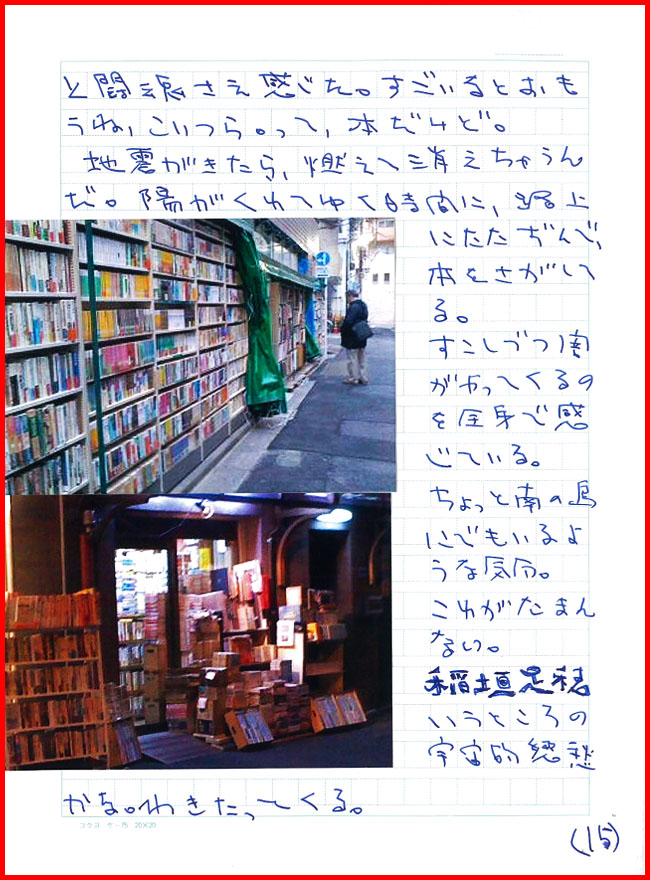 と闘魂さえ感じた。すごいなとおも
うね、こいつら。って、本だけど。
地震がきたら、燃えて消えちゃうん
だ。陽がくれてゆく時間に、路上
にたたずんで、
本をさがして
る。
すこしづつ闇
がやってくるの
を全身で感
じている。
ちょっと南の島
にでもいるよ
うな気分。
これがたまん
ない。
稲垣足穂
いうところの
宇宙的郷愁
かな。わきたってくる。
コクヨ 20×20
(15)